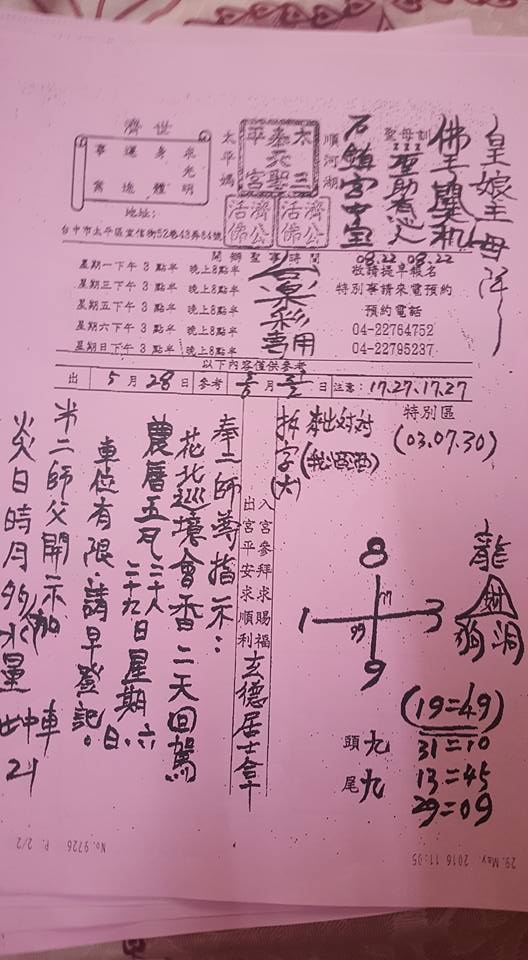 皇娘主母降
佛手契机
聖母訓
聖助有心人
石鎮宮中宝
順河湖
太三
泰元聖
平宮
太平媽
濟公活佛
濟公活佛
濟世
泉光明
身體
運途
事業
地址:
台中市太平區宜信街52巷43弄84號
開辦聖事時間
星期一下午3點半 晚上8點半
星期三下午3點半 晚上8點半
星期五下午3點半 晚上8點半
星期六下午3點半 晚上8點半
星期日下午3點半 晚上8點半
六合彩專用
08.22.08.22
敬請提早報名
特別事請來電預約
預約電話
04-22764752
04-22795237
以下內容僅供參考
出 5月28日 參考 月 日 注意: 17.27.17.27
特別區
(03.07.30)
龍
洞
狗
拆字(大)
8
1
3
9
(19=49)
31=10
13=45
29=09
頭九
尾九
入宮參拜求賜福
出宮平安求順利
玄德居士拿
奉二師尊指示:
花北巡境會香二天回駕
農曆五月二十八
二十九日星期六
日
車位有限請早登記。
半二師父開示
炎日時月
水量
車中
No.9726 P. 2/2
29. May. 2016 11:05